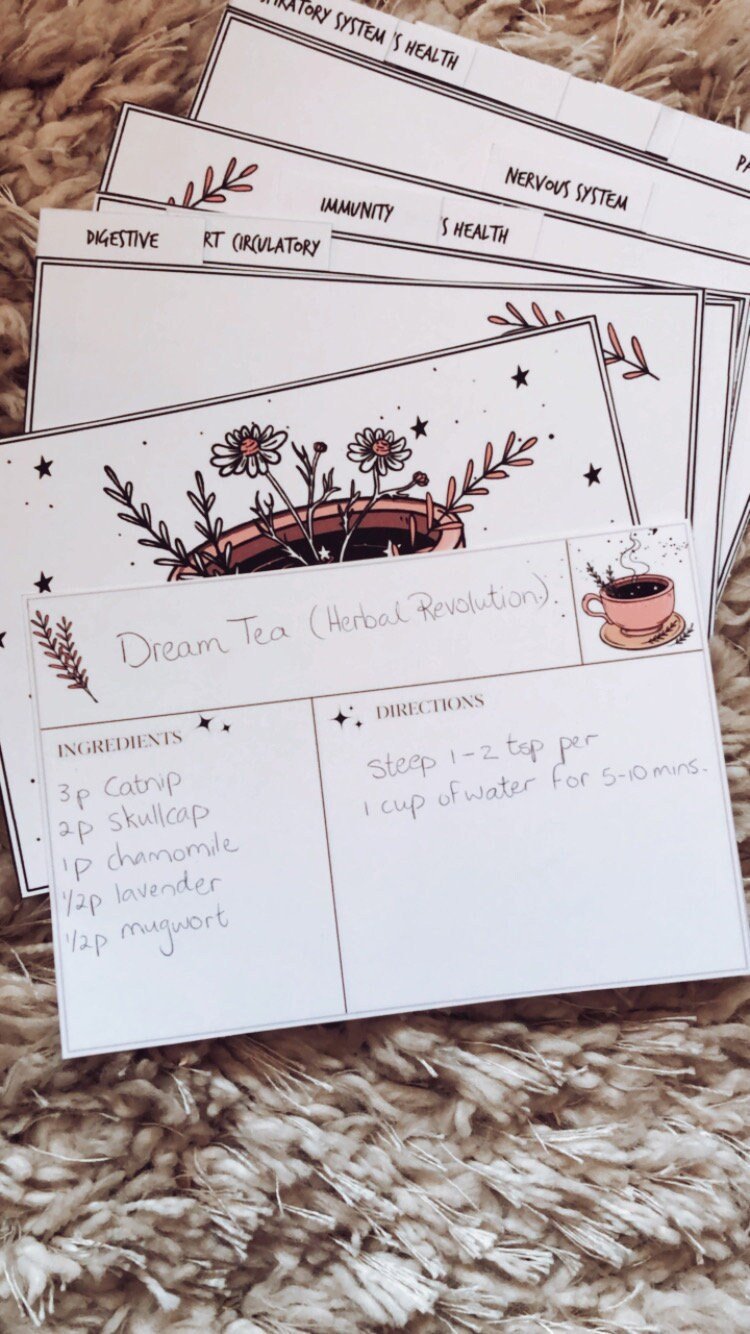 PIRATORY SYSTEM
'S HEALTH
PA
NERVOUS SYSTEM
IMMUNITY
S HEALTH
DIGESTIVE
RT CIRCULATORY
Dream Tea (Herbal Revolution).
INGREDIENTS
3p Catnip
2p Skullcap
1p chamomile
1/2p lavender
1/2p mugwort
DIRECTIONS
Steep 1-2 tsp per
1 cup of water for 5-10 mins.